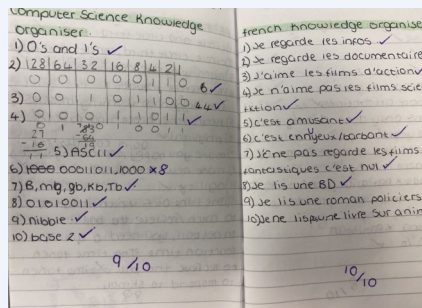 computer science knowledge
organiser.
1) 0's and 1's ✓
2) 128 64 32 16 8 4 2 1
0 0 0 0 0 1 1 0 6 ✓
3) 0 0 1 0 1 1 0 0 44 ✓
4) 0 0 0 1 1 0 1 1 ✓
27
- 16
11
5) ASCII ✓
6) 00011011, 1000 x8
7) B, mb, gb, kb, Tb ✓
8) 01010011 ✓
9) nibble ✓
10) base 2 ✓
9/10
french knowledge organise
1) Je regarde les infos ✓
2) Je regarde les documentaire
3) J'aime les films d'action ✓
4) Je n'aime pas les films scie
5) c'est amusant ✓
6) c'est ennyeux/barbant ✓
7) Je ne pas regarde les films
fantastiques c'est nul ✓
8) Je lis une BD ✓
9) Je lis une roman policiers
10) Je ne lis une livre sur anim
10/10